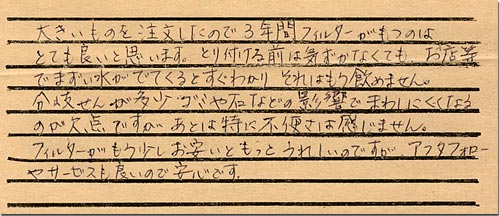 大きいものを注文したので3年間フィルターがもつのは
とても良いと思います。とり付ける前は気ずかなくても お店等
でまずい水がでてくるとすぐわかり それはもう飲めません。
分岐せんが多少ゴミや石などの影響でまわしにくくなる
のが欠点ですが あとは特に不便さは感じません。
フィルターがもう少しお安いともっとうれしいのですが アフタフォロー
やサービスも良いので安心です。